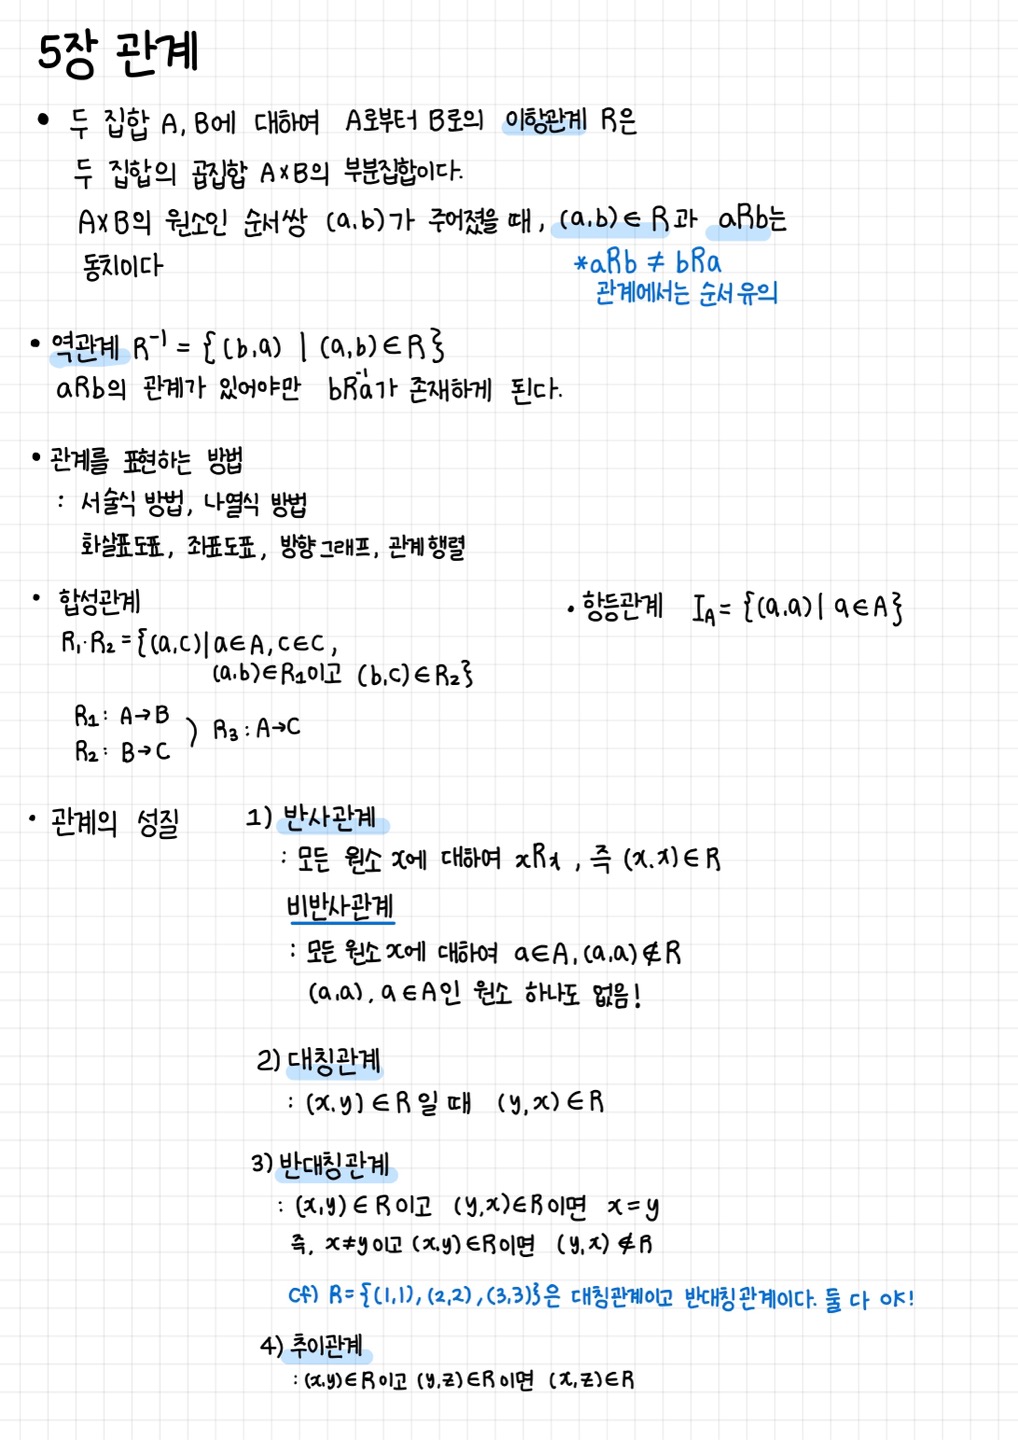 5장 관계
• 두 집합 A, B에 대하여 A로부터 B로의 이항관계 R은
두 집합의 곱집합 A×B의 부분집합이다.
A×B의 원소인 순서쌍 (a,b)가 주어졌을 때, (a,b)∈R과 aRb는
동치이다
*aRb ≠ bRa
관계에서는 순서 유의
• 역관계 R⁻¹ = {(b,a) | (a,b)∈R}
aRb의 관계가 있어야만 bR⁻¹a가 존재하게 된다.
• 관계를 표현하는 방법
: 서술식 방법, 나열식 방법
화살표도표, 좌표도표, 방향그래프, 관계행렬
• 합성관계
R₁·R₂={(a,c)|a∈A, c∈C,
(a,b)∈R₁이고 (b,c)∈R₂}
R₁: A→B
R₂: B→C
) R₃: A→C
• 항등관계 I_A = {(a,a)| a∈A}
• 관계의 성질
1) 반사관계
: 모든 원소 x에 대하여 xRx, 즉 (x,x)∈R
비반사관계
: 모든 원소 x에 대하여 a∈A, (a,a)∉R
(a,a), a∈A인 원소 하나도 없음!
2) 대칭관계
: (x,y)∈R일 때 (y,x)∈R
3) 반대칭관계
: (x,y)∈R이고 (y,x)∈R이면 x=y
즉, x≠y이고 (x,y)∈R이면 (y,x)∉R
cf) R={(1,1),(2,2),(3,3)}은 대칭관계이고 반대칭관계이다. 둘 다 OK!
4) 추이관계
: (x,y)∈R이고 (y,z)∈R이면 (x,z)∈R